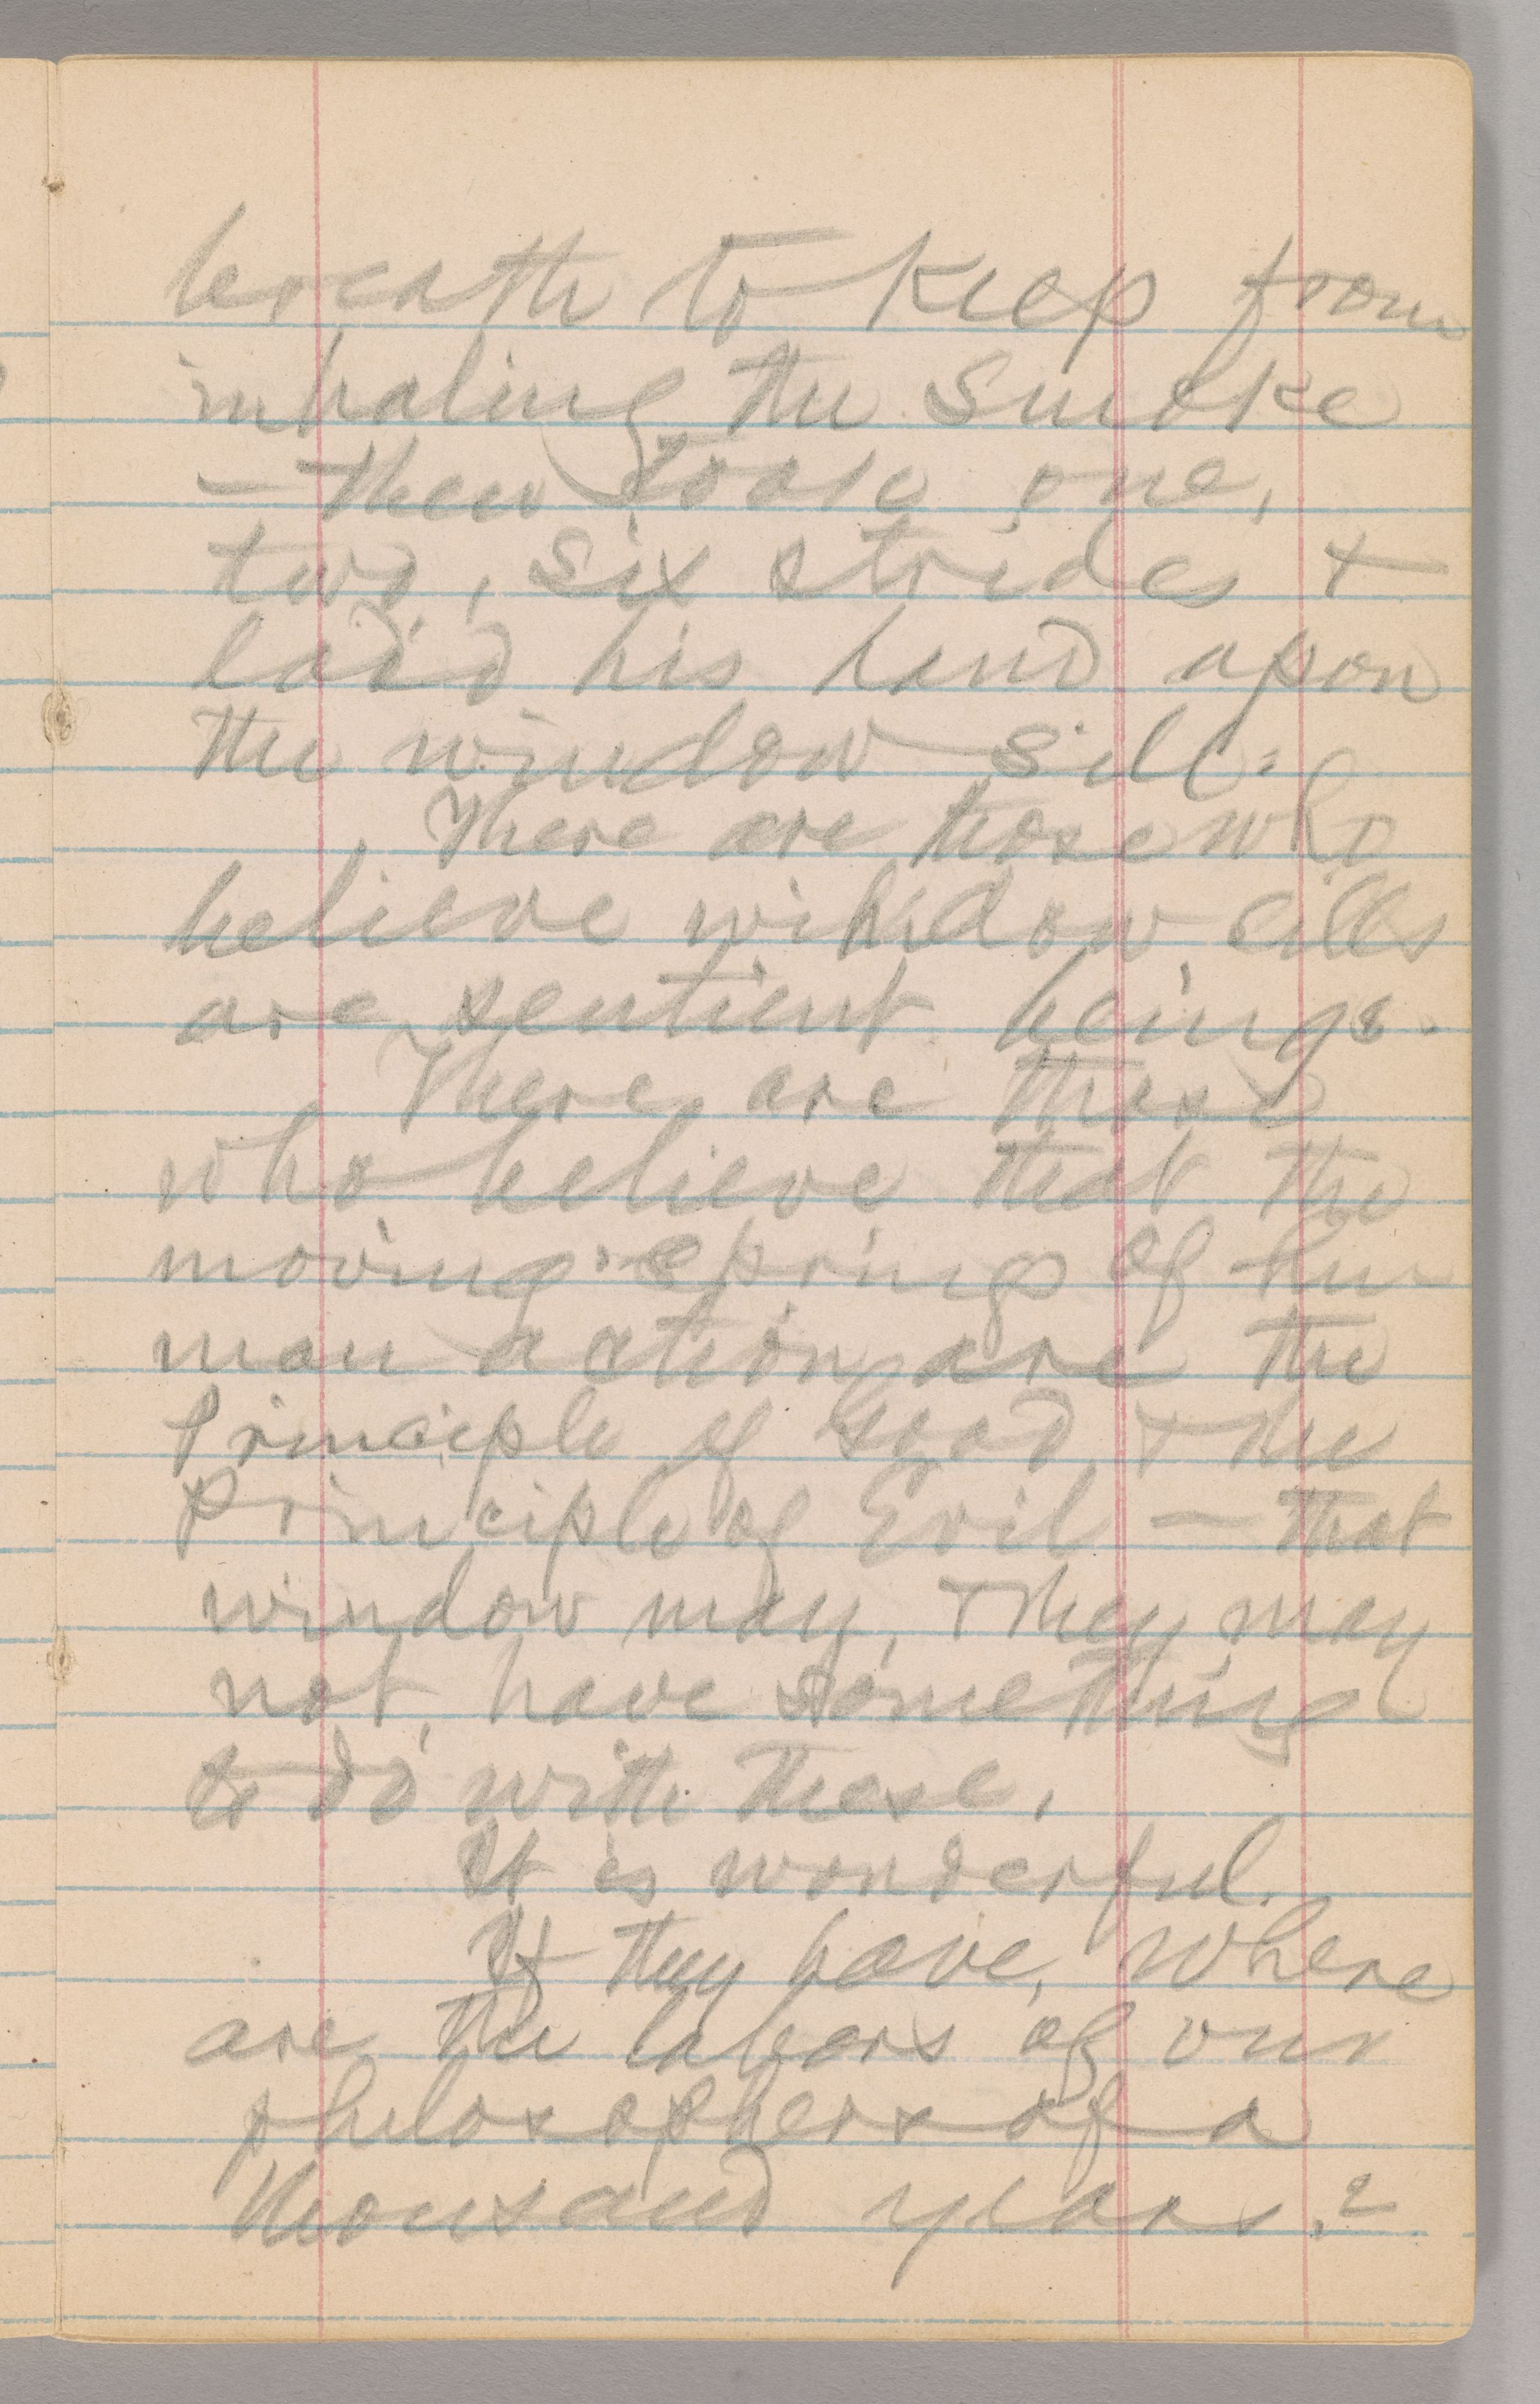 breath to keep from
inhaling the smoke
— then took one,
two, six strides +
laid his hand upon
the window sill.
There are those who
believe window sills
are sentient beings.
There are those
who believe that the
moving springs of hu-
man action are the
Principle of Good + the
Principle of Evil — that
window may, + they may
not, have something
to do with these.
It is wonderful.
If they have, where
are the labors of our
philosophers of a
thousand years?